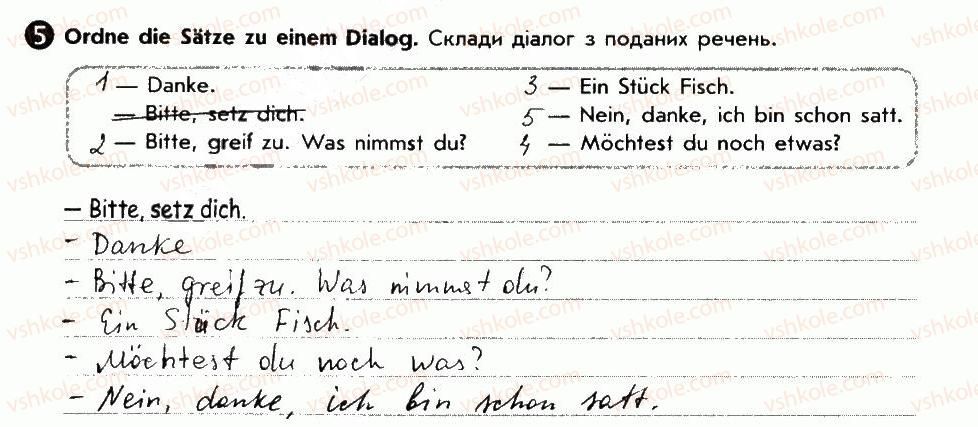 5 Ordne die Sätze zu einem Dialog. Склади діалог з поданих речень.
1 — Danke.
— Bitte, setz dich.
2 — Bitte, greif zu. Was nimmst du?
3 — Ein Stück Fisch.
5 — Nein, danke, ich bin schon satt.
4 — Möchtest du noch etwas?
— Bitte, setz dich.
- Danke
- Bitte, greif zu. Was nimmst du?
- Ein Stück Fisch.
- Möchtest du noch was?
- Nein, danke, ich bin schon satt.
vshkole.com